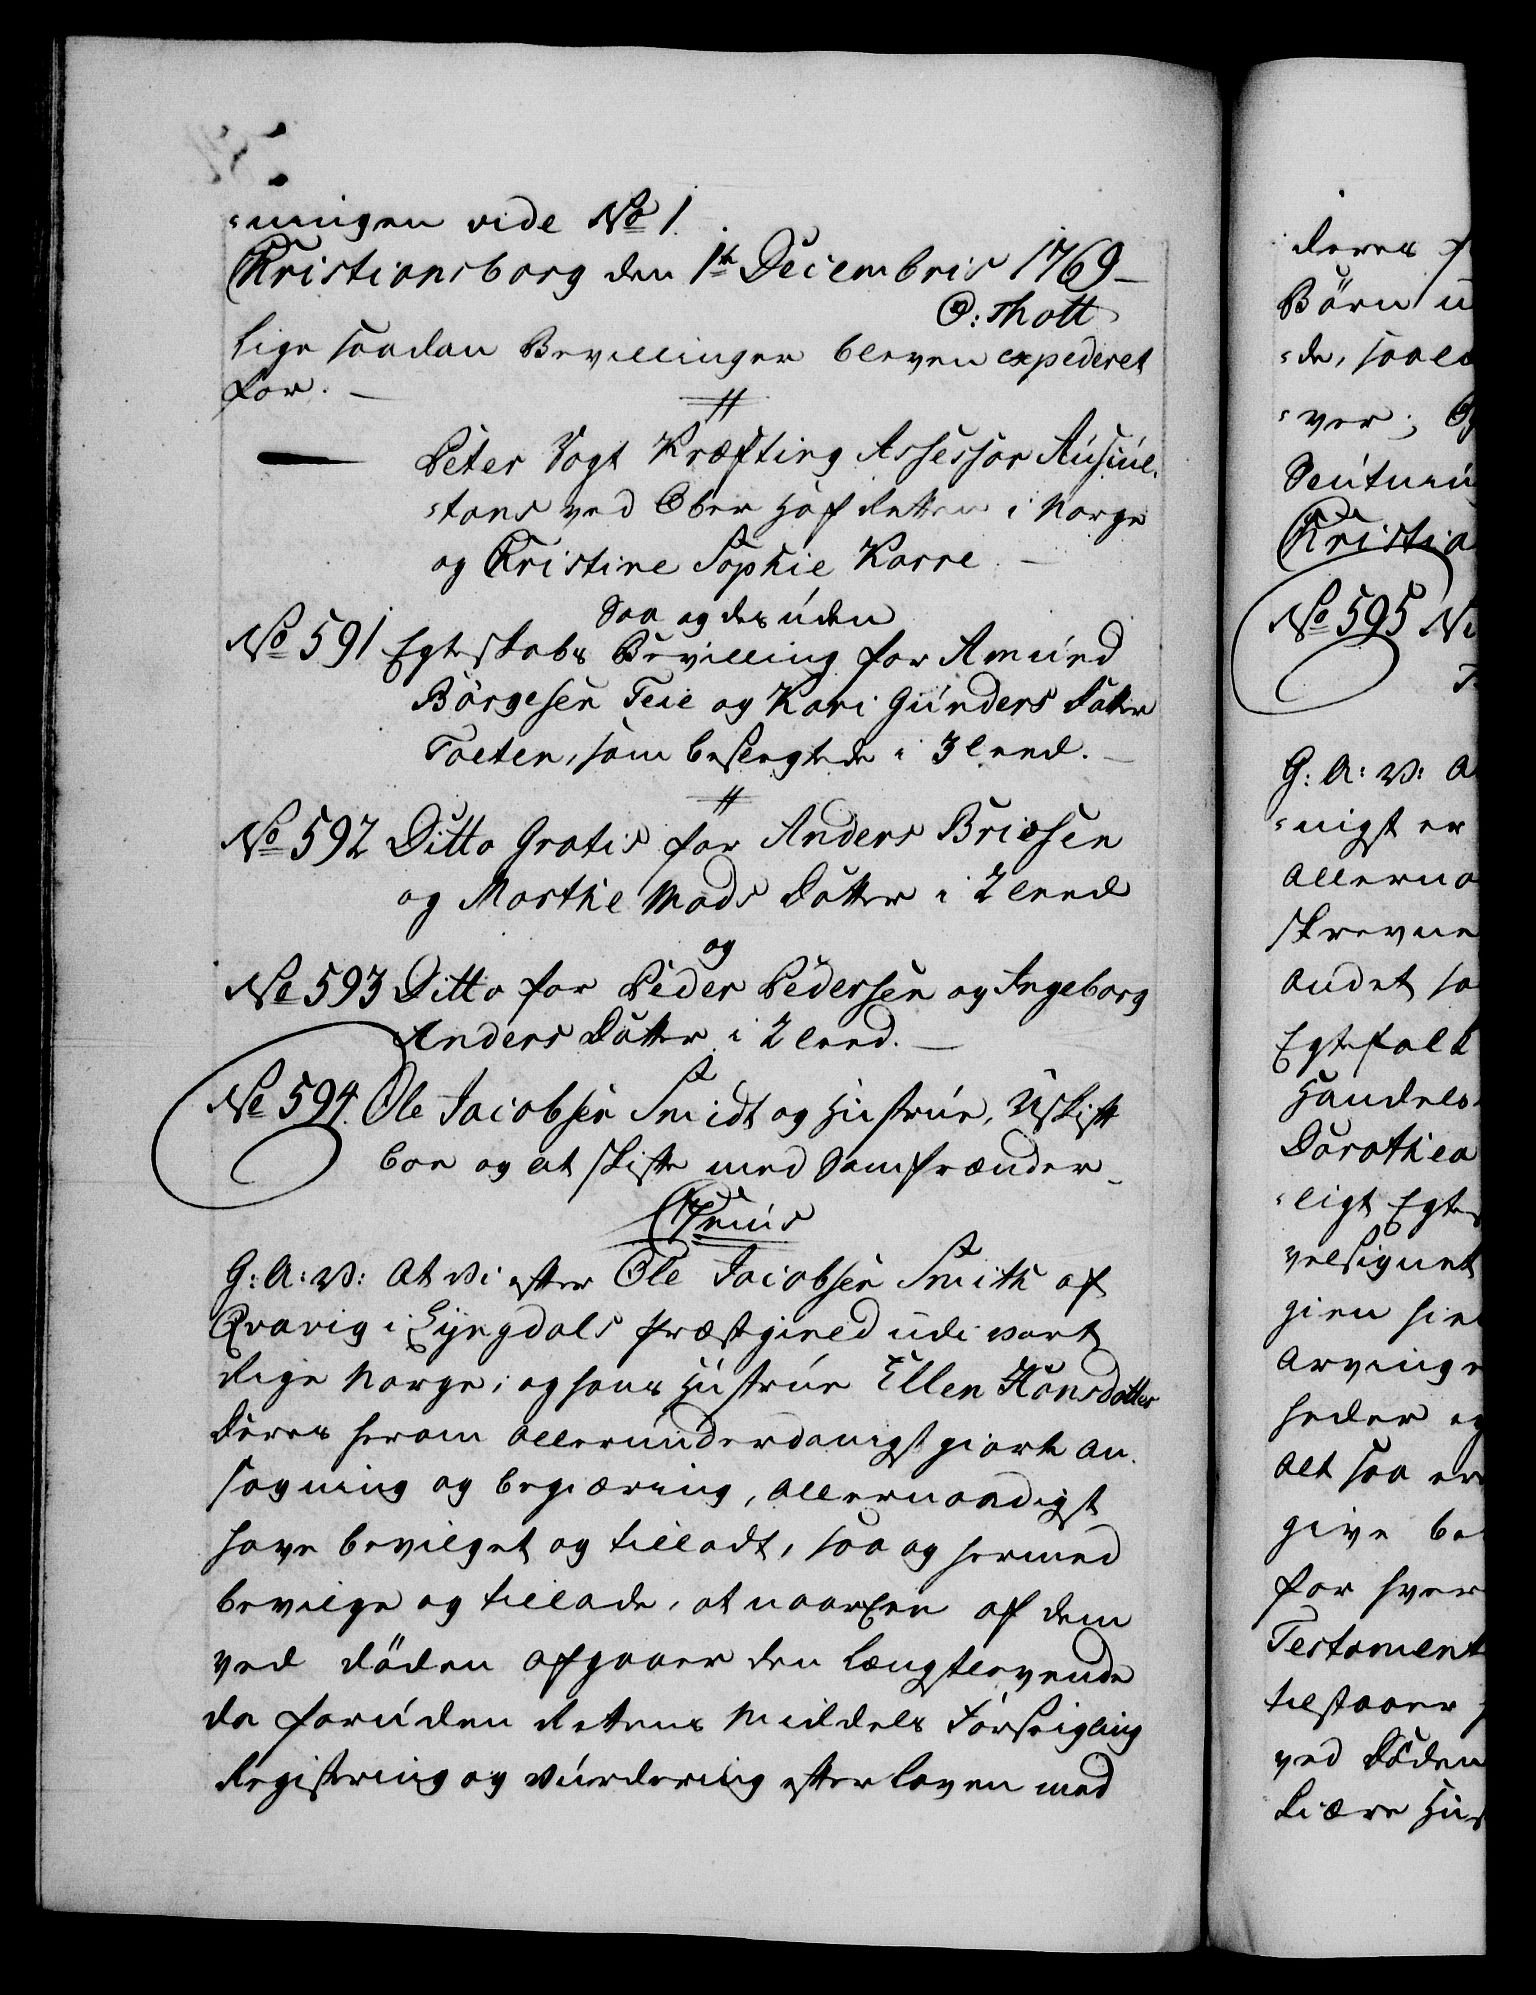 -ningen vide No 1
Christiansborg den 1te Decembris 1769
O: Thott
Lige saadan Bevillinger bleven expederet
for.
Peter Vogt Kræfting Assessor Auscul-
-tans ved Ober Hof Retten i Norge
og Christine Sophie Karre
Saa og desuden
No 591 Egteskabs Bevilling for Amund
Börgesen Teie og Kari Gunders Datter
Toeten, som beslegtede i 3 leed.
No 592 Ditto Gratis for Anders Briosen
og Marthe Mads Datter i 2 leed
og
No 593 Ditto for Peder Pedersen og Ingeborg
Anders Datter i 2 leed.
No 594. Ole Jacobsen Smidt og Hustrue, Uskift
boe og at skifte med Samfrænder
Genus
G: A: V: At Vi efter Ole Jacobsen Smith af
Qvavig i Lyngdals Præstegield udi vort
Rige Norge, og hans Hustrue Ellen Hansdatter
Deres herom allerunderdanigst giorte An-
søgning og begiæring, allernaadigst
have bevilget og tilladt, saa og hermed
bevilge og tillade, at naar Een af dem
ved döden afgaaer den længstlevende
da foruden Rettens Middels Forseigling
Registering og Vurdering efter Loven med
deres
Börn u
-de, saale
-ver; Og
Christia
No 595
G: A: V: A
-nigst er
Allerna
skrevne
andet sa
Egtefolk
Handels
Dorothea
-ligt Egte
velsignet
gien
Arvinge
heder og
alt saa er
give be
for hver
Testament
tilstaaer
ved Döden
Kiære Hus